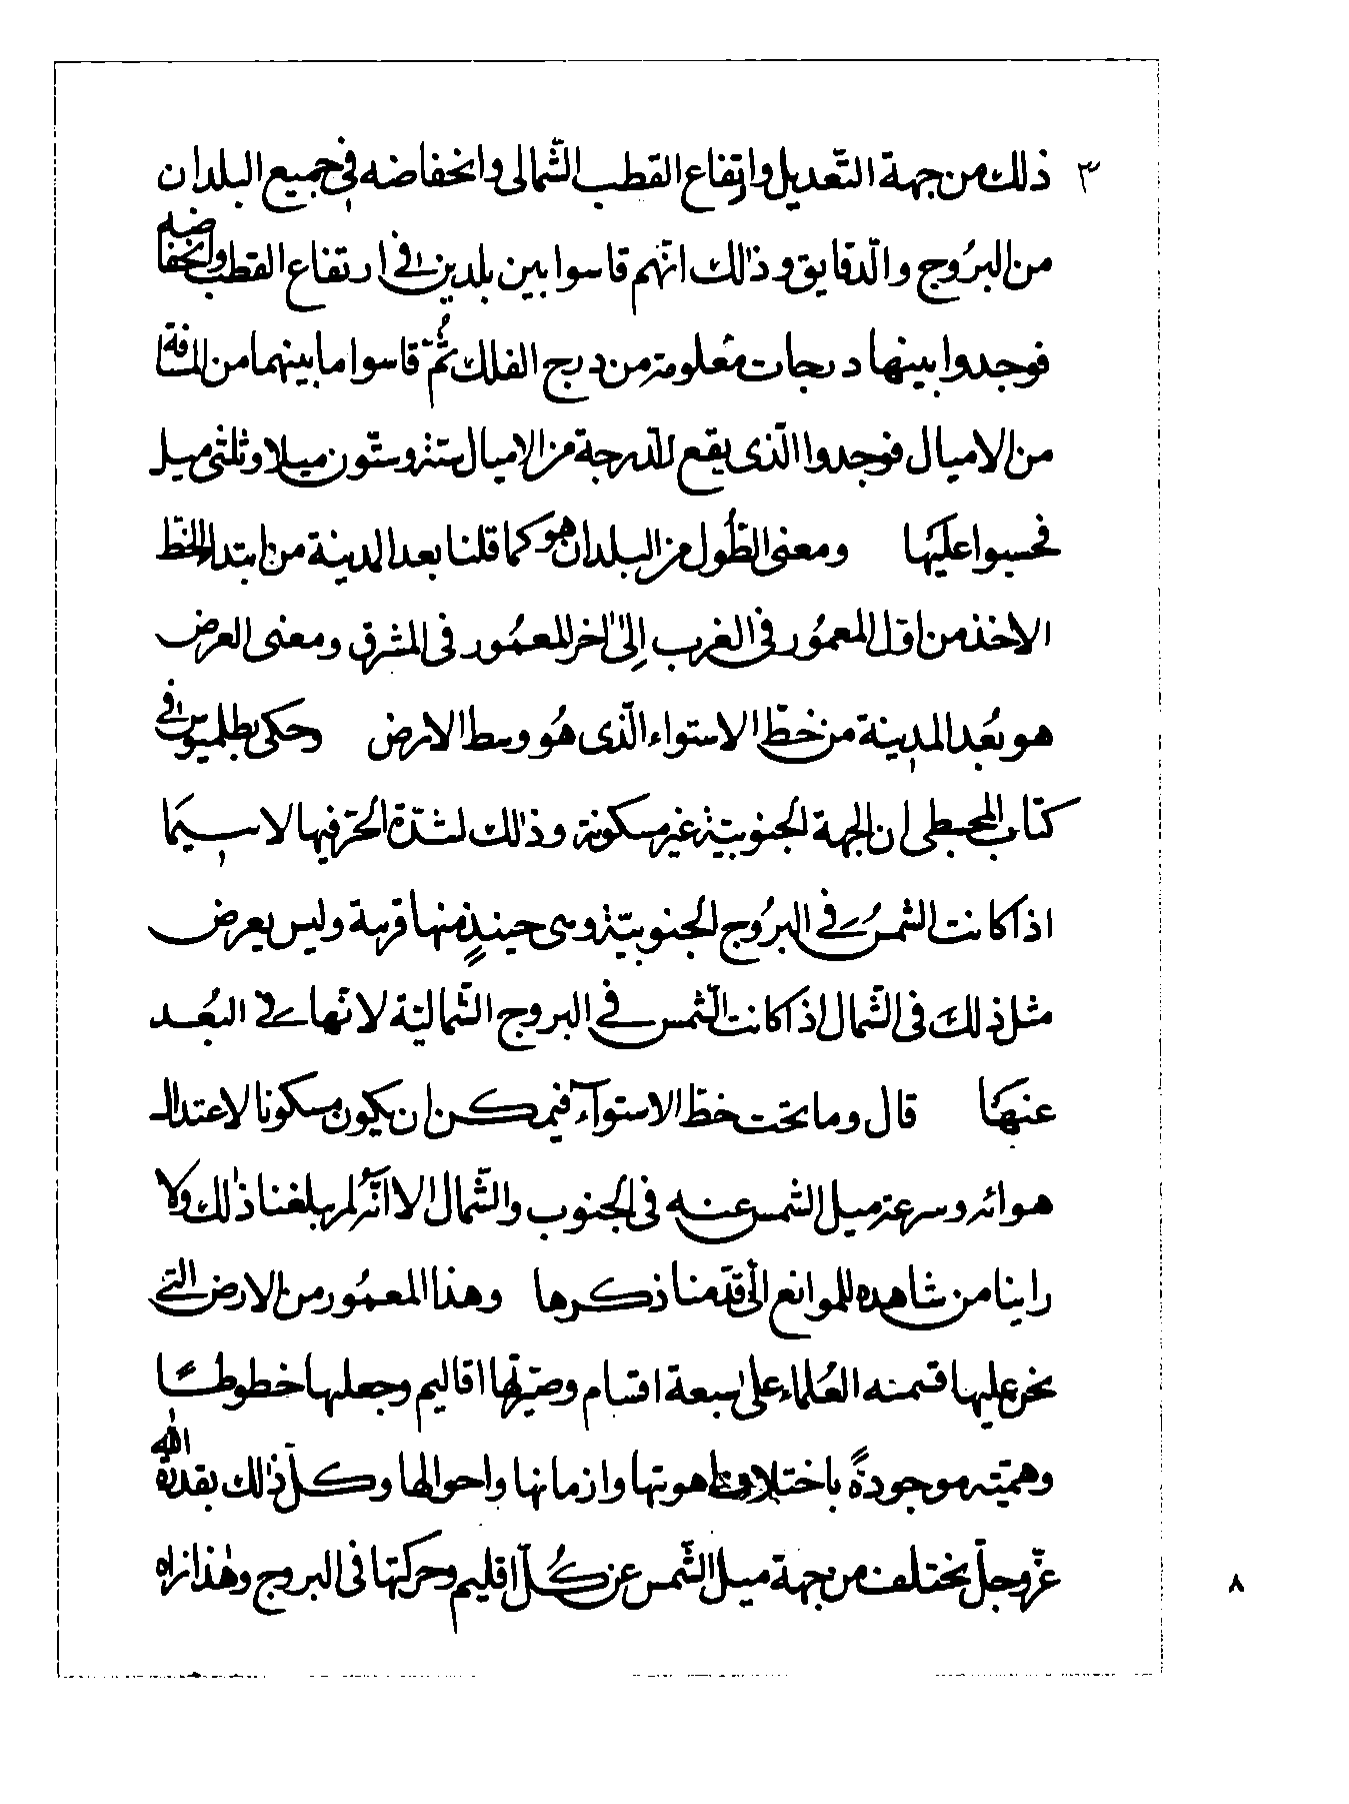 ٣ ذلك من جهة التّعديل وارتفاع القطب الشّمالى وانخفاضه فى جميع البلدان
من البرُوج والدّقايق وذلك انّهم قاسوا بين بلدين فى ارتفاع القطب وانخفاضه
فوجدوا بينها درجات معلومة من درج الفلك ثُمّ قاسوا ما بينهما من المسافة
من الاميال فوجدوا الّذى يقع للدّرجة من الاميال ستّة وستّون ميلا وثلثى ميل
فحسبوا عليَها ومعنى الطُول من البلدان هو كما قلنا بعد المدينة من ابتداء الخطّ
الاخذ من اوّل المعمُور فى الغرب اِلىٰ اٰخر المعمُور فى المشرق ومعنى العرض
هو بُعد المدينة من خطّ الاستواء الّذى هُو وسط الارض وحكى بطلميوس فى
كتاب المجسطى ان الجهة الجنوبيّة غير مسكونة وذٰلك لشدّة الحّر فيها لا سيَما
اذا كانت الشمسُ فى البرُوج الجنوبيّة وهى حينئذٍ منها قريبة وليس يعرض
مثل ذلكَ فى الشّمال اذ كانت الشّمس فى البروج الشّماليّة لانّها فى البُعد
عنهَا قال وما تحَت خطّ الاستوآء فيمكن ان يكون مسكونا لاعتدال
هوائه وسرعة ميل الشمس عنه فى الجنوب والشّمال الا انّهُ لم يبلغنا ذٰلك ولا
راينا من شاهده للموانع الّتى قدّمنا ذكرها وهذا المعمُور من الارض الّتى
نحن عليها قسمته العُلماء على سبعة اقسام وصيّرتها اقاليم وجعلها خطوطًا
وهميّة موجودةً باختلاف اهويتها وازمانها واحوالها وكلّ ذٰلك بقدرة اللّٰه
عزّ وجلّ يختلف من جهة ميل الشّمس عن كُلّ اقليم وحركتها فى البروج وهٰذا نراه
٨